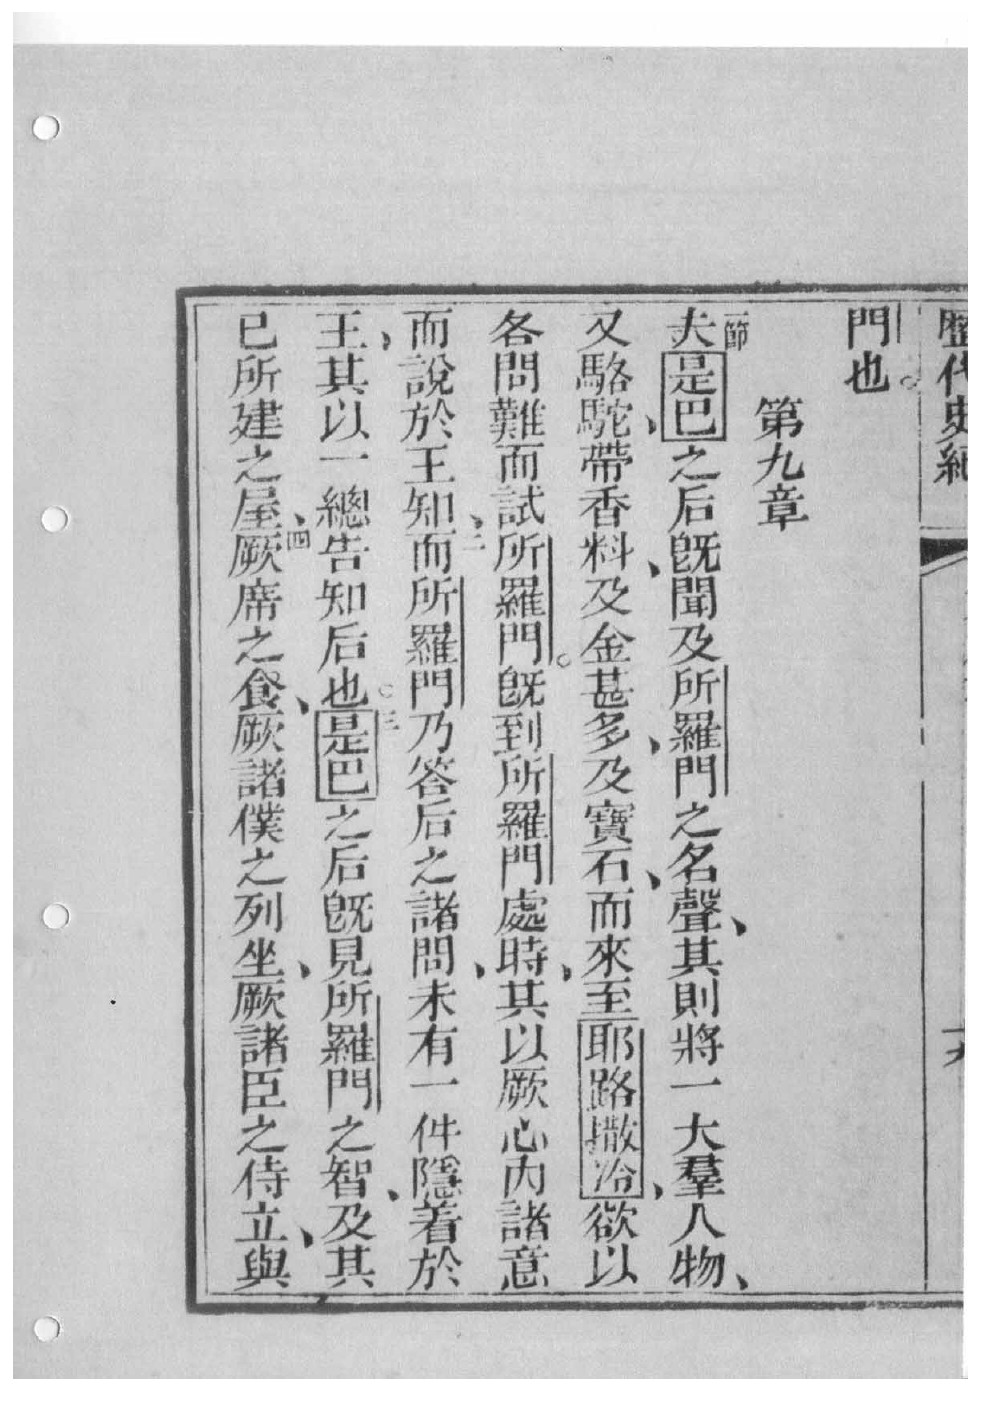 歷代史紀
門也。
第九章
一節夫是巴之后旣聞及所羅門之名聲、其則將一大羣人物、
又駱駝、帶香料、及金甚多、及寶石、而來至耶路撒冷、欲以
各問難而試所羅門。旣到所羅門處時、其以厥心內諸意
而說於王知、二而所羅門乃答后之諸問、未有一件隱着於
王、其以一總告知后也。三是巴之后旣見所羅門之智、及其
已所建之屋、四厥席之食、厥諸僕之列坐、厥諸臣之侍立、與